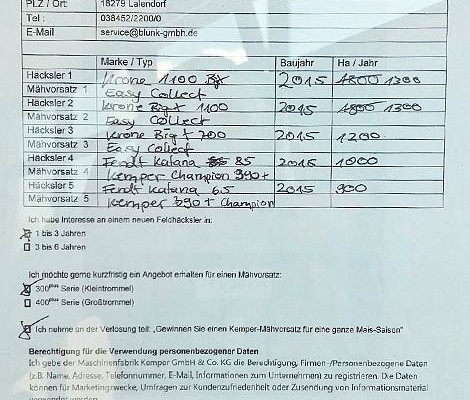 PLZ / Ort: 18279 Lalendorf
Tel: 038452/2200/0
E-Mail service@blunk-gmbh.de
Marke / Typ Baujahr Ha / Jahr
Häcksler 1 Krone 1100 2015 1800 1300
Mähvorsatz 1 Easy Collect
Häcksler 2 Krone Big X 1100 2015 1800 1300
Mähvorsatz 2 Easy Collect
Häcksler 3 Krone Big X 700 2015 1200
Mähvorsatz 3 Easy Collect
Häcksler 4 Fendt Katana 85 2015 1000
Mähvorsatz 4 Kemper Champion 390+
Häcksler 5 Fendt Katana 65 2015 900
Mähvorsatz 5 Kemper 390+ Champion
Ich habe Interesse an einem neuen Feldhäcksler in:
1 bis 3 Jahren
3 bis 6 Jahren
Ich möchte gerne kurzfristig ein Angebot erhalten für einen Mähvorsatz:
300plus Serie (Kleintrommel)
400plus Serie (Großtrommel)
Ich nehme an der Verlosung teil: „Gewinnen Sie einen Kemper-Mähvorsatz für eine ganze Mais-Saison"
Berechtigung für die Verwendung personenbezogener Daten
Ich gebe der Maschinenfabrik Kemper GmbH & Co. KG die Berechtigung, Firmen-/Personenbezogene Daten
(z.B. Name, Adresse, Telefonnummer, E-Mail, Informationen zum Unternehmen) zu registrieren. Die Daten
können für Marketingzwecke, Umfragen zur Kundenzufriedenheit oder Zusendung von Informationsmaterial
verwendet werden